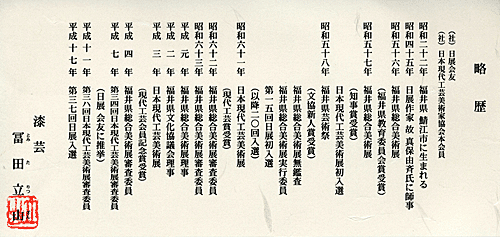 略歴
(社) 日展会友
(社) 日本現代工芸美術家協会本会員
昭和二十二年 福井県 鯖江市に生まれる
昭和四十五年 日展作家 故 真保由斉氏に師事
昭和五十六年 福井県総合美術展
(福井県教育委員会賞受賞)
昭和五十七年 福井県総合美術展
(知事賞受賞)
日本現代工芸美術展初入選
昭和五十八年 福井県芸術祭
(文協新人賞受賞)
福井県総合美術展無鑑査
福井県総合美術展実行委員
第一五回日展初入選
(以降二〇回入選)
昭和六十一年 日本現代工芸美術展
(現代工芸賞受賞)
昭和六十三年 福井県総合美術展審査委員
平成元年 福井県総合美術展審査委員
平成二年 福井県文化協議会理事
平成三年 日本現代工芸美術展
(現代工芸会員記念賞受賞)
平成四年 福井県総合美術展審査委員
平成七年 第三四回日本現代工芸美術展審査委員
(日展会友に推挙)
平成十一年 第三八回日本現代工芸美術展審査委員
平成十七年 第三七回日展入選
漆芸
冨田立山